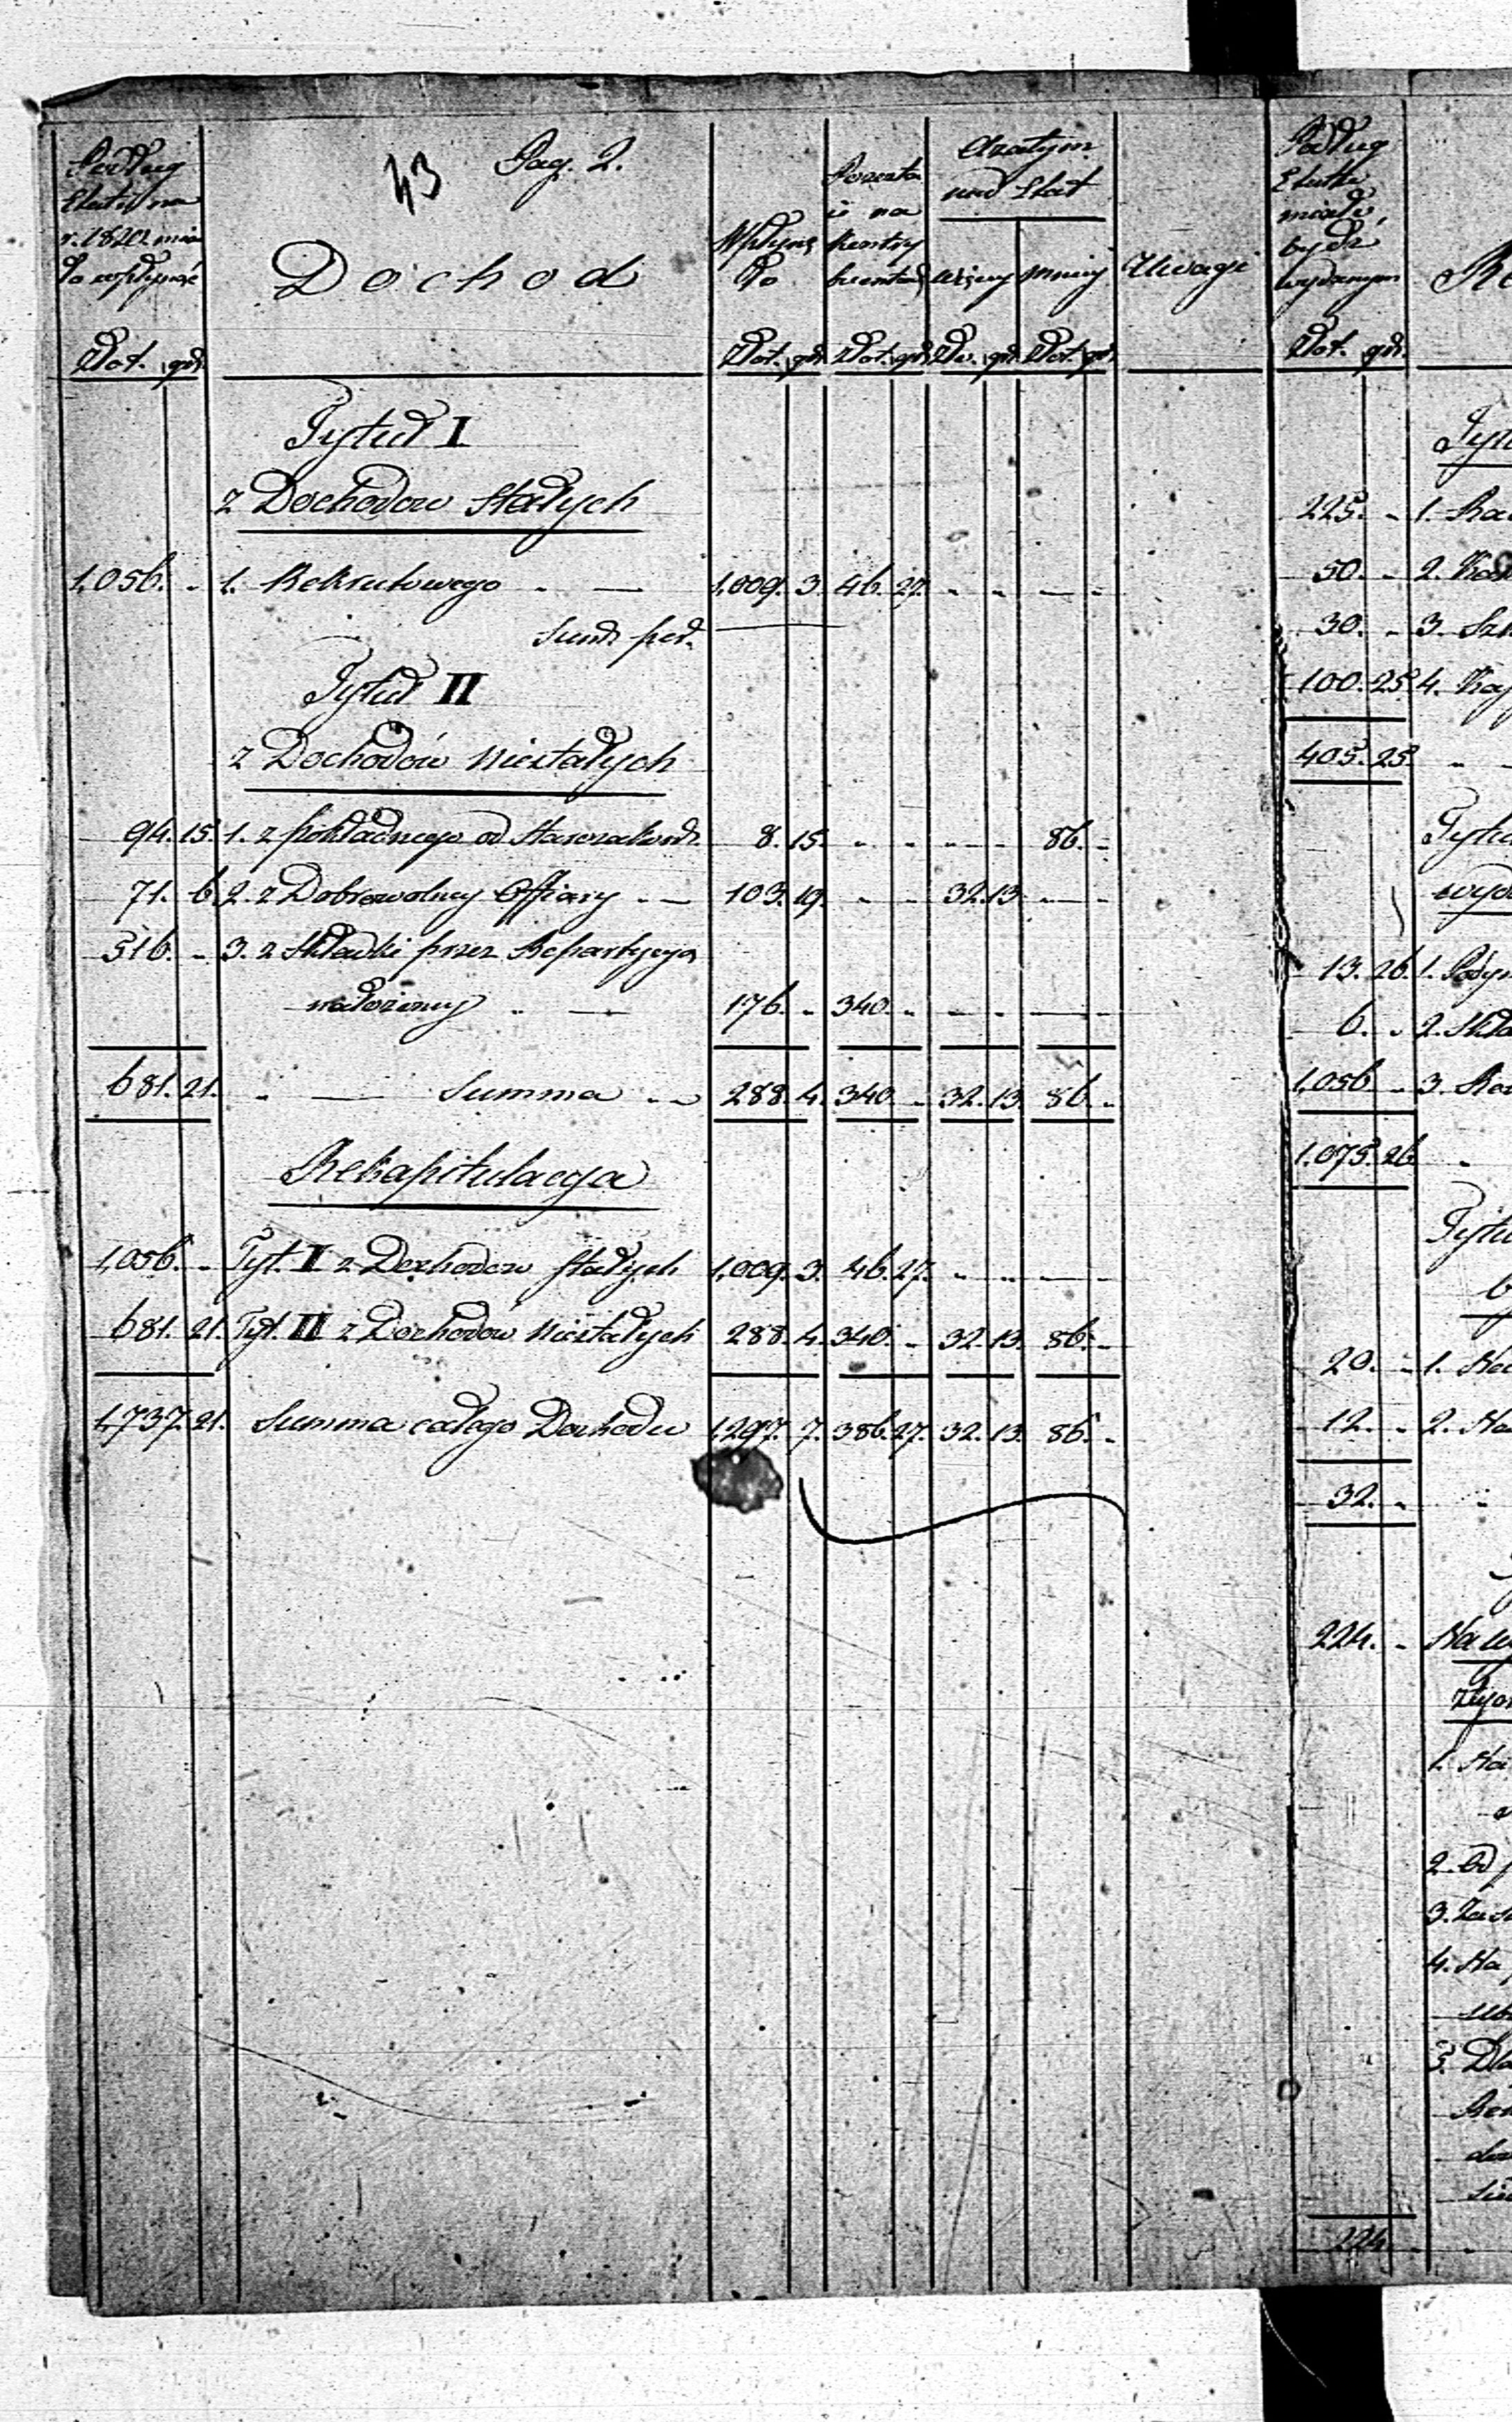 43 Pag. 2.
Podług
Etatu na
r. 1820 mia
ło wpłynąć
Złot. gr.
Dochod
Wpłynę
ło
Złot. gr.
Pozosta
ie na
kontry
buentach
Złot. gr.
A zatym
nad Etat
więcey
Zło. gr.
mniey
Złot. gr.
Uwagi
Tytuł I
z Dochodow Stałych
1,056. - 1. Rekrutowego - — 1,009. 3. 46. 27. - - - -
Summ. per.
Tytuł II
z Dochodów Niestałych
94. 15. 1. z pokładnego od Starozakond. 8. 15. - - - - 86. -
71. 6. 2. z Dobrowolney Offiary - — 103. 19. - - 32. 13. - -
516. - 3. z Składki przez Repartycyą
nałożoney - — 176. - 340. - - - - -
681. 21. - — Summa - - 288. 4. 340. - 32. 13. 86. -
Rekapitulacya
1,056. - Tyt. I z Dochodow Stałych 1,009. 3. 46. 27. - - - -
681. 21. Tyt. II z Dochodow Niestałych 288. 4. 340. - 32. 13. 86. -
1,737. 21. Summa całego Dochodu 1,297. 7. 386. 27. 32. 13. 86. -
Podług
Etatu
miało
bydź
wydanym
Złot. gr.
Tytu
225. - 1.
50. - 2.
30. - 3.
100. 25. 4.
405. 25
Tytu
wyd
13. 26. 1.
6. - 2. Skła
1,056 - 3.
1,075. 26
Tytu
20. - 1. Na
12. - 2. Na
32. -
224. - Na
1. Na
2. Od
3. Za
4. Na
5. Dla
224.